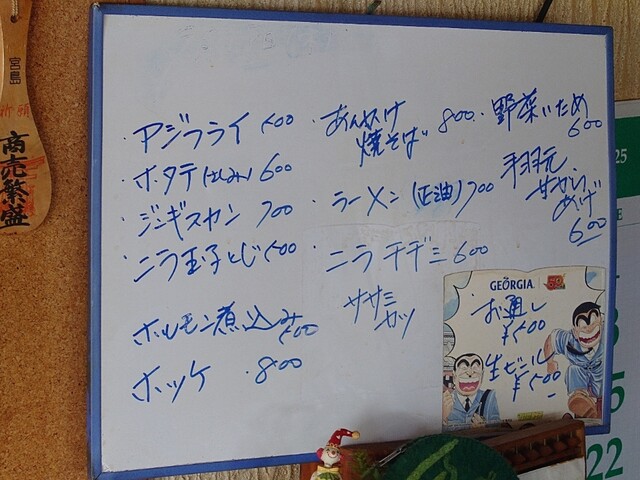 宮島
祈願
商売繁盛
・アジフライ 500
・ホタテ(さしみ) 600
・ジンギスカン 700
・ニラ玉子とじ 500
ホルモン煮込み
500
ホッケ ・800
・あんかけ
焼そば 800
・ラーメン(正油)700
・ニラチヂミ 600
ササミ
カツ
・野菜いため
600
手羽元
あげ
600
GEORGIA
お通し
¥500
生ビール
¥500
25
22